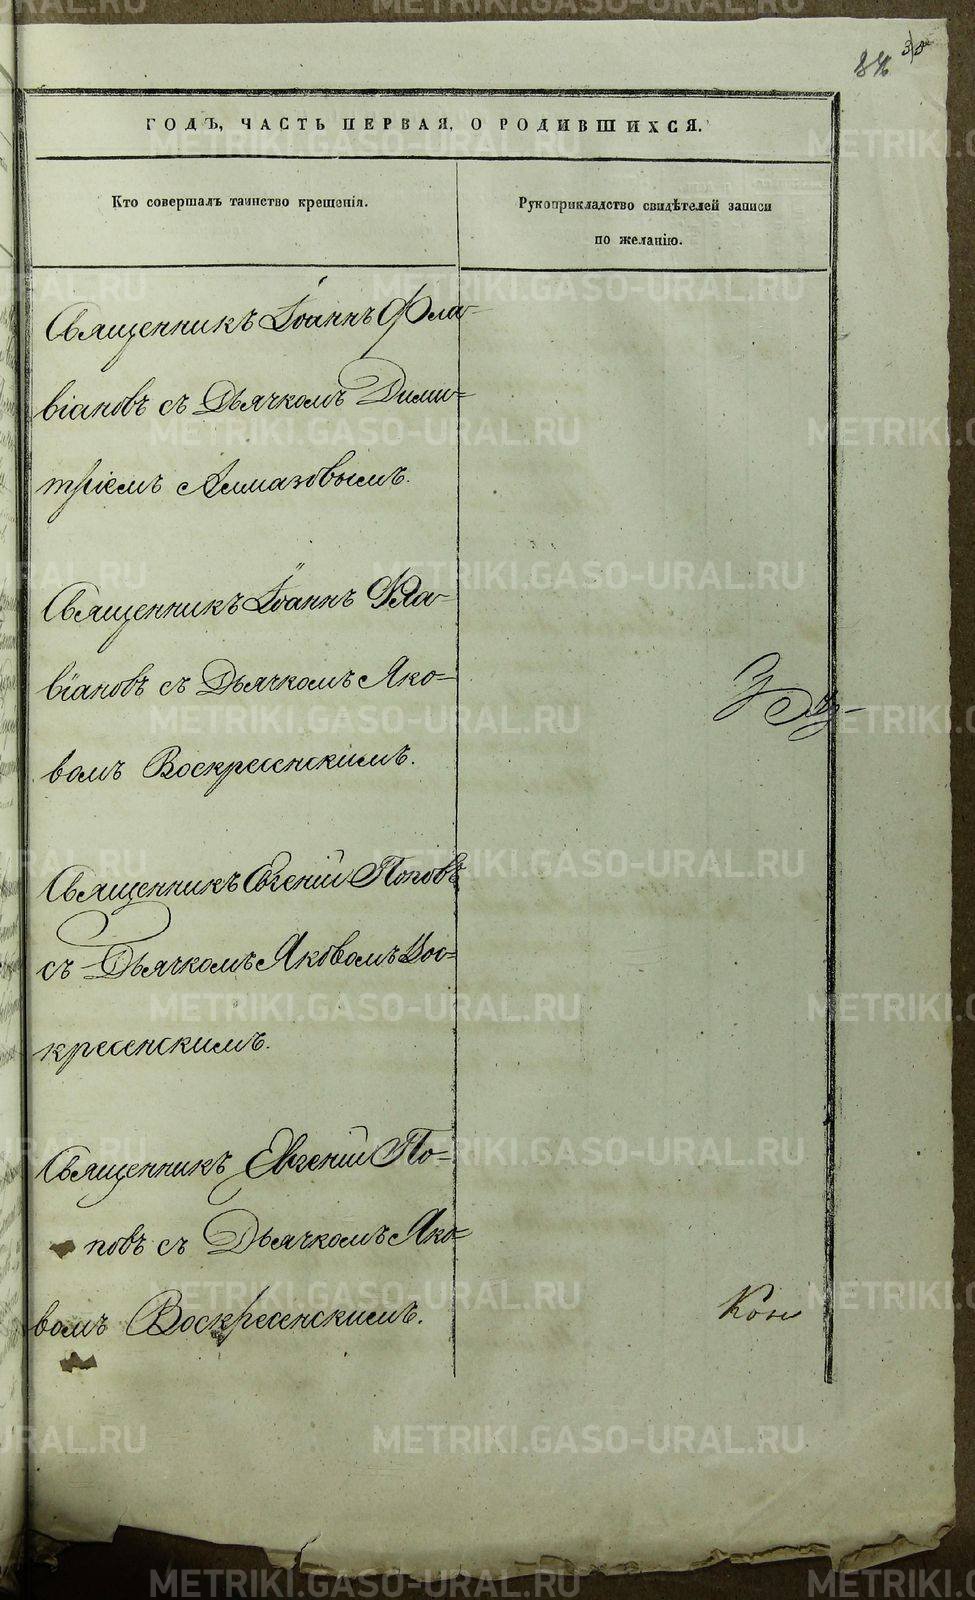 ГОДЪ, ЧАСТЬ ПЕРВАЯ, О РОДИВШИХСЯ.
Кто совершалъ таинство крещенія.
Рукоприкладство свидѣтелей записи
по желанію.
Священникъ Іоаннъ Фла-
віановъ съ Дьячкомъ Дими-
тріемъ Алмазовымъ.
Священникъ Іоаннъ Фла-
віановъ съ Дьячкомъ Яко-
вомъ Воскресенскимъ.
Священникъ Евгеній Поповъ
съ Дьячкомъ Яковомъ Вос-
кресенскимъ.
Священникъ Евгеній По-
повъ съ Дьячкомъ Яко-
вомъ Воскресенскимъ.
Кон
METRIKI.GASO-URAL.RU